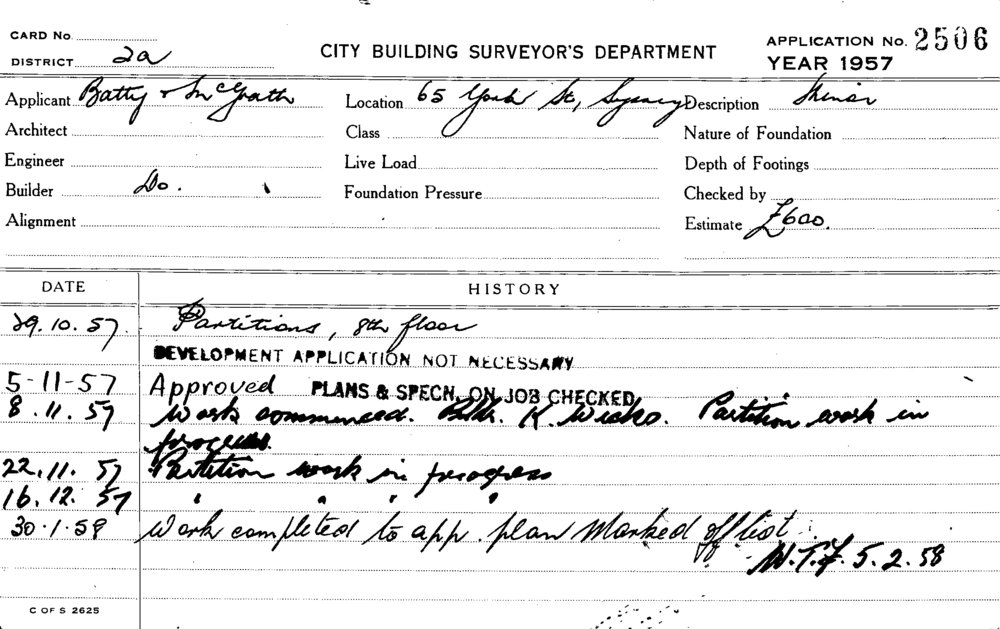 CARD No.
DISTRICT 2a
CITY BUILDING SURVEYOR'S DEPARTMENT
APPLICATION No. 2506
YEAR 1957
Applicant Batty & McGrath Location 65 York St, Sydney Description Minor
Architect Class Nature of Foundation
Engineer Live Load Depth of Footings
Builder Do. Foundation Pressure Checked by
Alignment Estimate £600.
DATE HISTORY
29.10.57. Partitions, 8th floor
DEVELOPMENT APPLICATION NOT NECESSARY
5-11-57 Approved PLANS & SPECN. ON JOB CHECKED
8.11.57 Work commenced. Bldr. K. Wicks. Partition work in
progress.
22.11.57 Partition work in progress
16.12.57 " " " "
30.1.58 Work completed to app. plan Marked off list
5.2.58
C OF S 2625